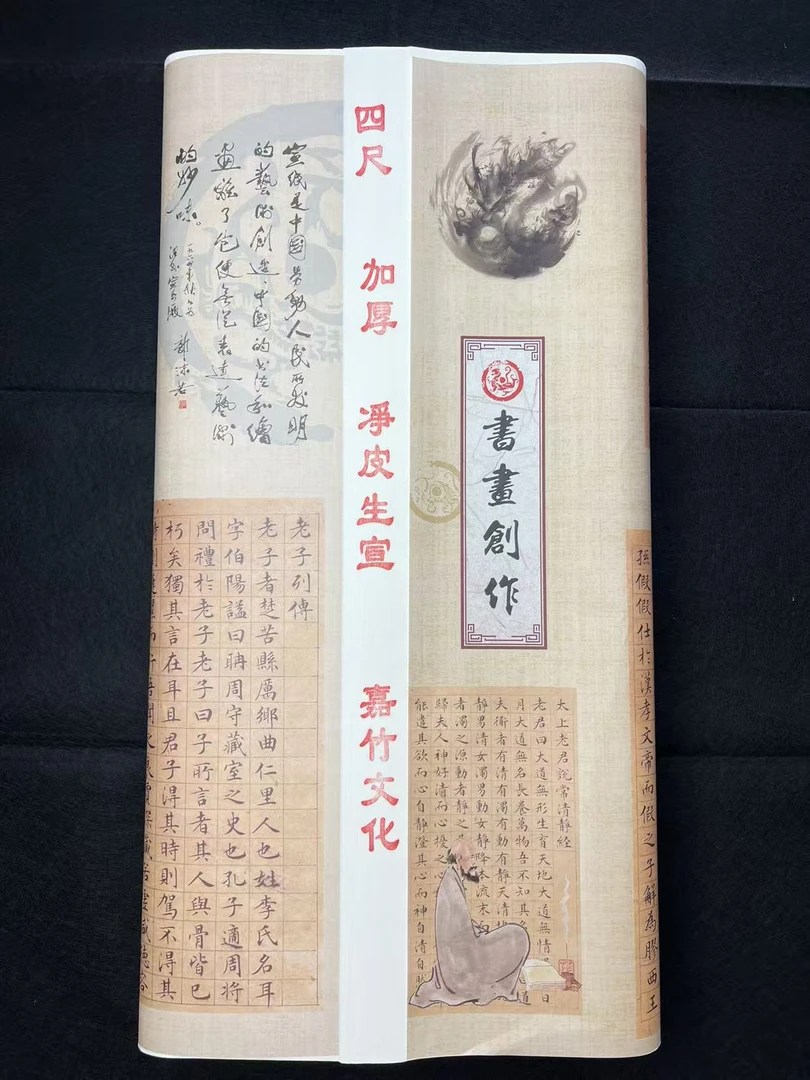 四尺 加厚 凈皮生宣 嘉竹文化
宣纸是中國劳動人民所发明
的藝術創造,中國的书法和繪
畫離了它便無從表達藝術
的妙味。
郭沫若
老子列傳
老子者楚苦縣厲鄉曲仁里人也姓李氏名耳
字伯陽謚曰聃周守藏室之史也孔子適周將
問禮於老子老子曰子所言者其人與骨皆已
朽矣獨其言在耳且君子得其時則駕不得其
書畫創作
太上老君說常清靜經
老君曰大道無形生育天地大道無情 日
月大道無名長養萬物吾不知其名 道
夫道者有清有濁有動有靜天清地
靜男清女濁男動女靜降本流末
者濁之源動者靜之
歸夫人神好清而心擾之心
能遣其欲而心自靜澄其心而神自清自
孫假假仕於漢孝文帝而假之子解為膠西王